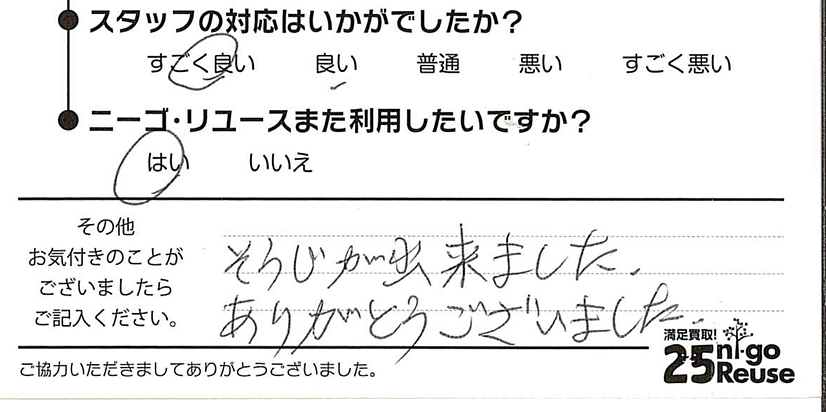 スタッフの対応はいかがでしたか？
すごく良い 良い 普通 悪い すごく悪い
ニーゴ・リユースまた利用したいですか？
はい いいえ
その他
お気付きのことが
ございましたら
ご記入ください。
そうじが出来ました.
ありがとうございました.
ご協力いただきましてありがとうございました。
満足買取!
25 ni-go
Reuse